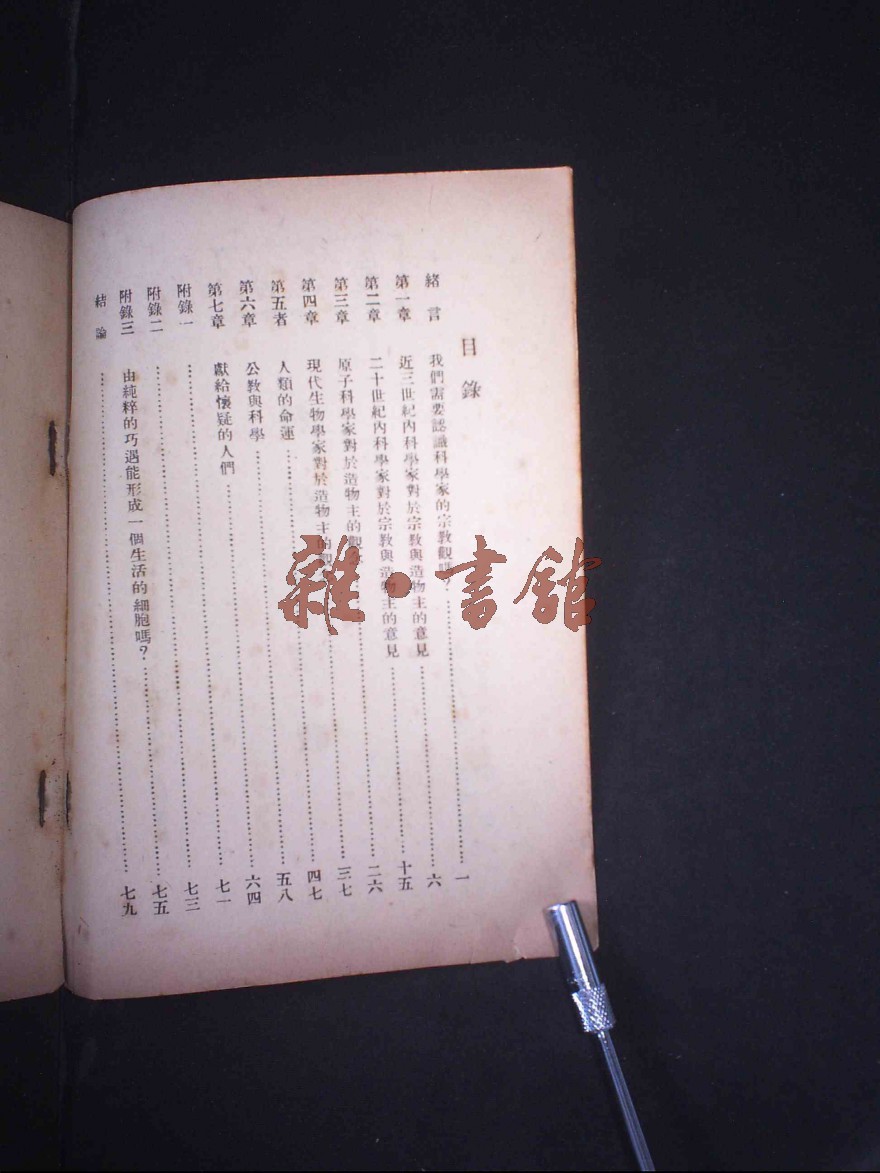 目錄
緒言 我們需要認識科學家的宗教觀嗎?……一
第一章 近三世紀內科學家對於宗教與造物主的意見……六
第二章 二十世紀內科學家對於宗教與造物主的意見……十五
第三章 原子科學家對於造物主的觀念……二六
第四章 現代生物學家對於造物主的觀……三七
第五者 人類的命運……四七
第六章 公教與科學……五八
第七章 獻給懷疑的人們……六四
附錄一……七一
附錄二……七三
附錄三 由純粹的巧遇能形成一個生活的細胞嗎?……七五
結論……七九
雜·書館